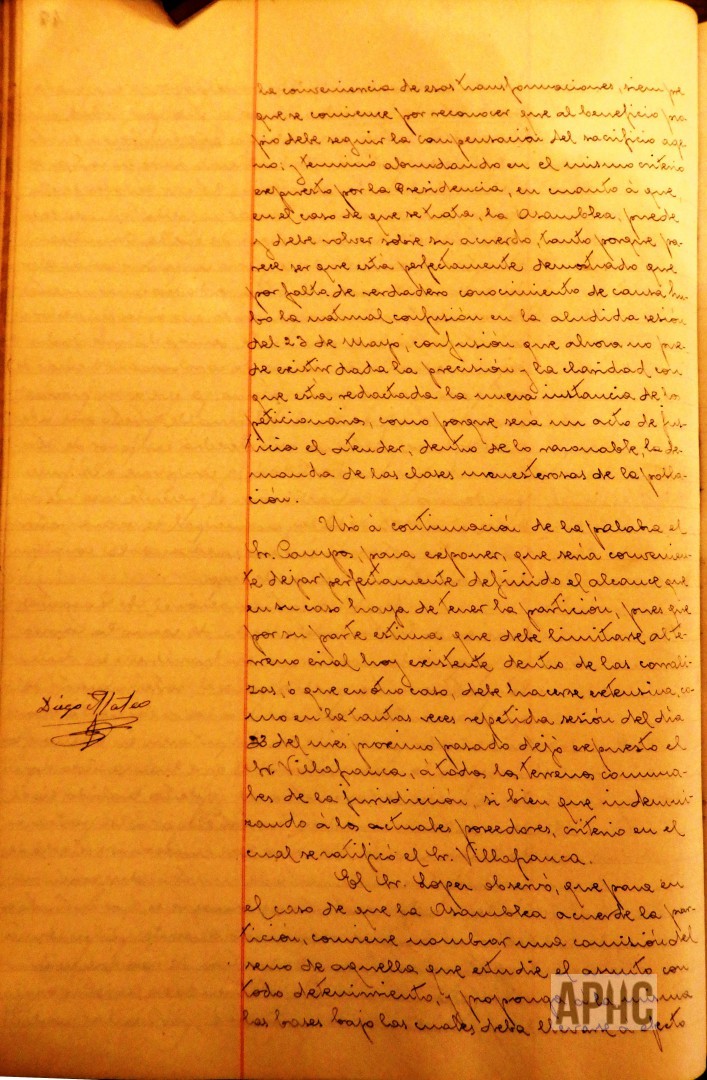 la conveniencia de esas transformaciones, siempre
que se comience por reconocer que al beneficio pro
pio debe seguir la compensación del sacrificio age
no; y terminó abundando en el mismo criterio
expuesto por la Presidencia, en cuanto á que,
en el caso de que se trata, la Asamblea, puede
y debe volver sobre su acuerdo, tanto porque pa-
rece ser que esta perfectamente demostrado que
por falta de verdadero conocimiento de causa hu-
bo la natural confusión en la aludida sesión
del 23 de Mayo, confusión que ahora no pue-
de existir dada la precisión y la claridad con
que esta redactada la nueva instancia de los
peticionarios, como porque será un acto de jus-
ticia el atender, dentro de lo razonable, la de-
manda de las clases menesterosas de la pobla-
ción.
Usó á continuación de la palabra el
Sr. Campos, para exponer, que sería convenien-
te dejar perfectamente definido el alcance que
en su caso haya de tener la partición, pues que
por su parte estima que debe limitarse al te-
rreno erial hoy existente dentro de las corrali-
zas, ó que en otro caso, debe hacerse extensiva, co-
mo en la tantas veces repetida sesión del día
23 del mes proximo pasado dejó expuesto el
Sr. Villafranca, á todos los terrenos comuna-
les de la jurisdicción, si bien que indemni-
zando á los actuales poseedores, criterio en el
cual se ratificó el Sr. Villafranca.
El Sr. Lopez observó, que para en
el caso de que la Asamblea acuerde la par-
tición, conviene nombrar una comisión del
seno de aquella que estudie el asunto con
todo detenimiento, y proponga a la misma
las bases bajo las cuales deba llevarse a efecto
Diego Mateo
APHC